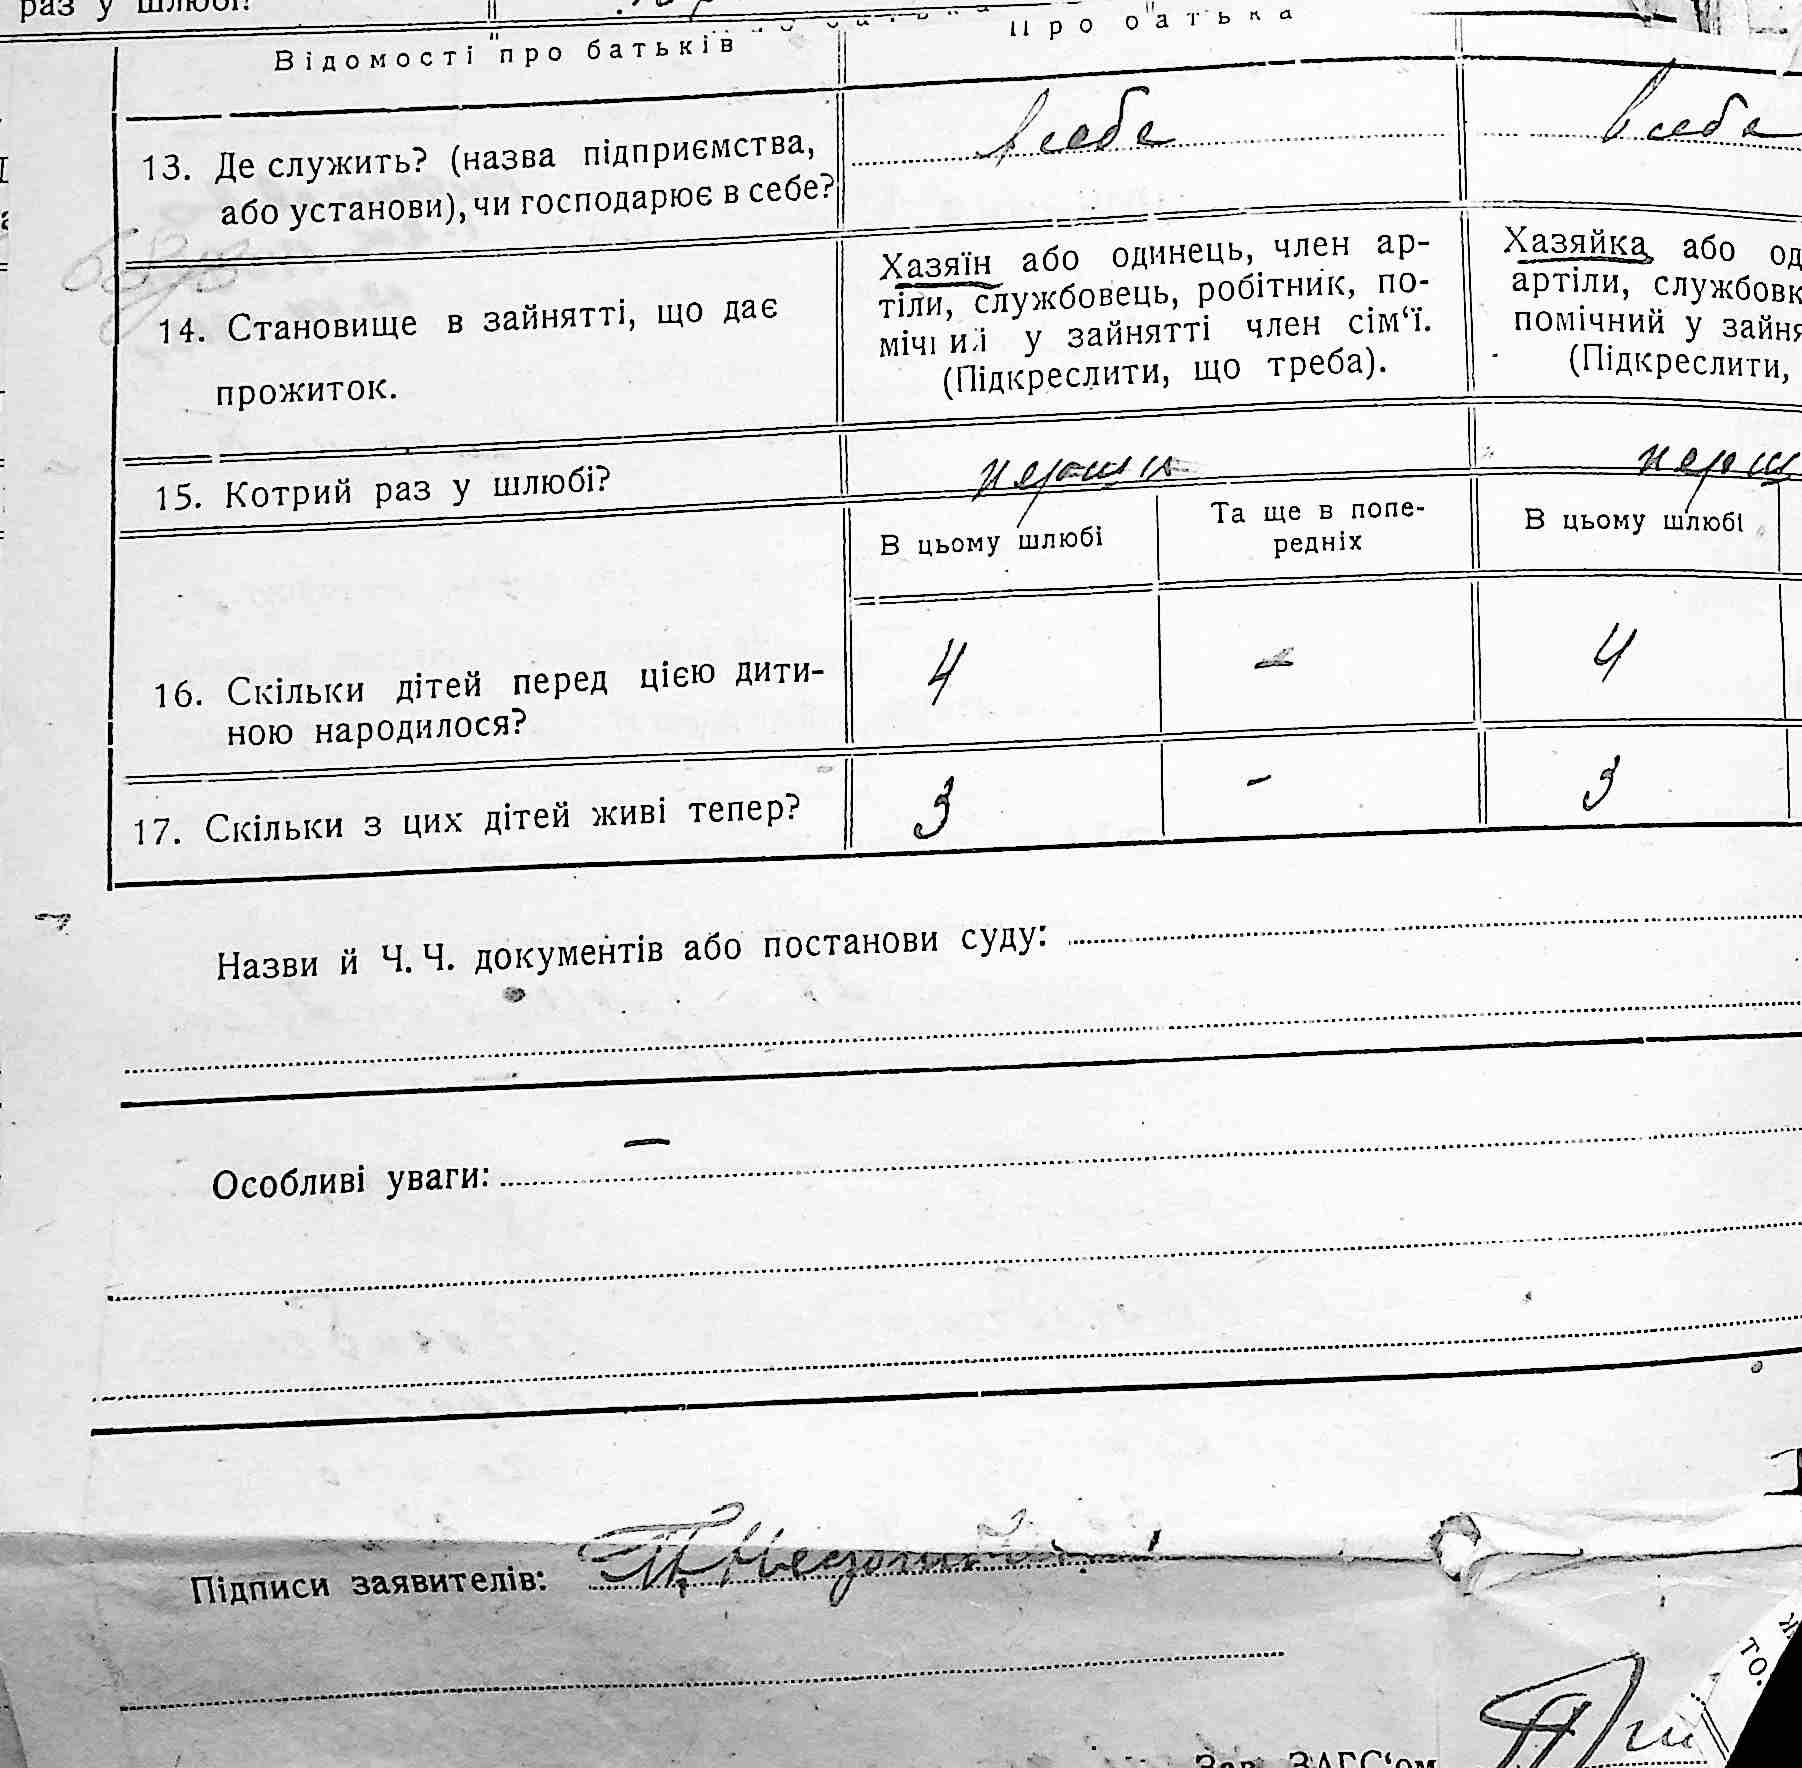 раз у шлюбі?
Відомості про батьків
Про батька
13. Де служить? (назва підприємства,
або установи), чи господарює в себе?
в себе
в себе
14. Становище в зайнятті, що дає
прожиток.
Хазяїн або одинець, член ар-
тіли, службовець, робітник, по-
мічний у зайнятті член сім‘ї.
(Підкреслити, що треба).
Хазяйка або од
артіли, службовк
помічний у зайня
(Підкреслити,
15. Котрий раз у шлюбі?
перший
перш
В цьому шлюбі
Та ще в попе-
редніх
В цьому шлюбі
16. Скільки дітей перед цією дити-
ною народилося?
4 - 4
17. Скільки з цих дітей живі тепер?
3 - 3
Назви й Ч. Ч. документів або постанови суду:
Особливі уваги: -
Підписи заявителів:
Зав. ЗАГС‘ом